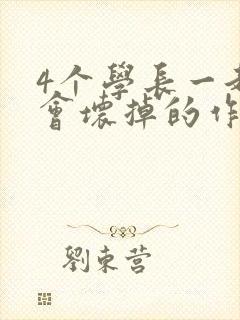 4个學長一
會壞掉的作
劉東营